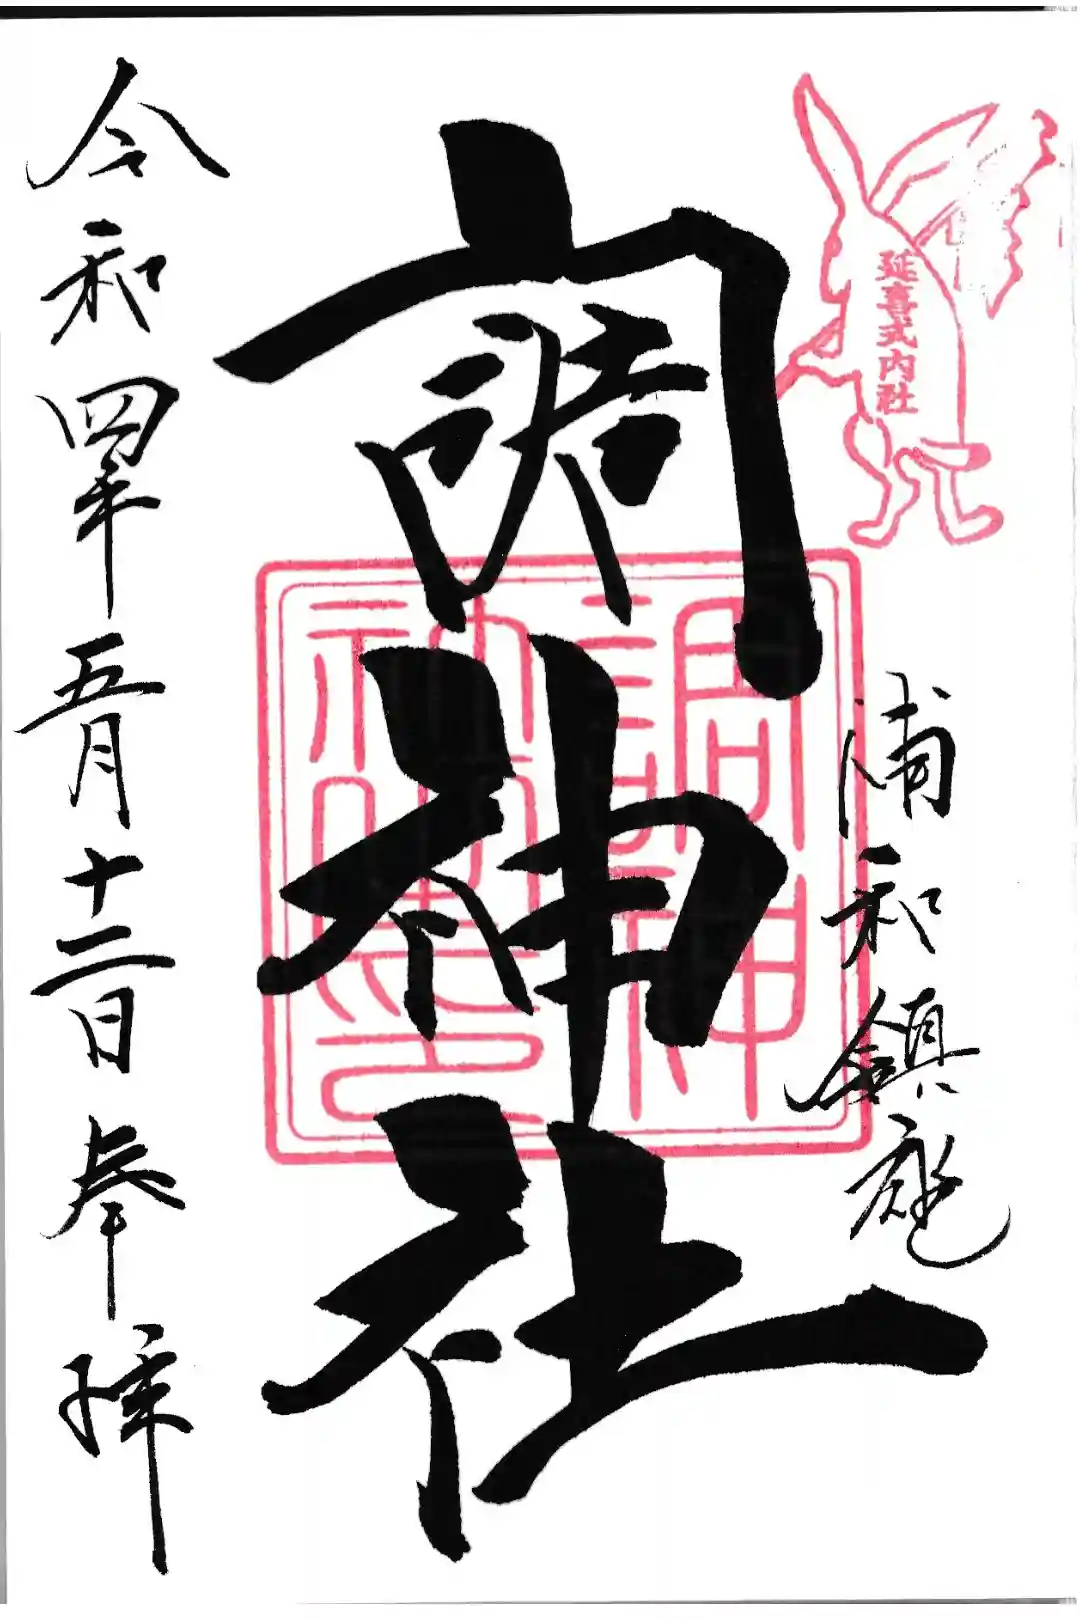 延喜式内社
浦和鎮座
調神社
調神
令和四年五月十二日奉拝